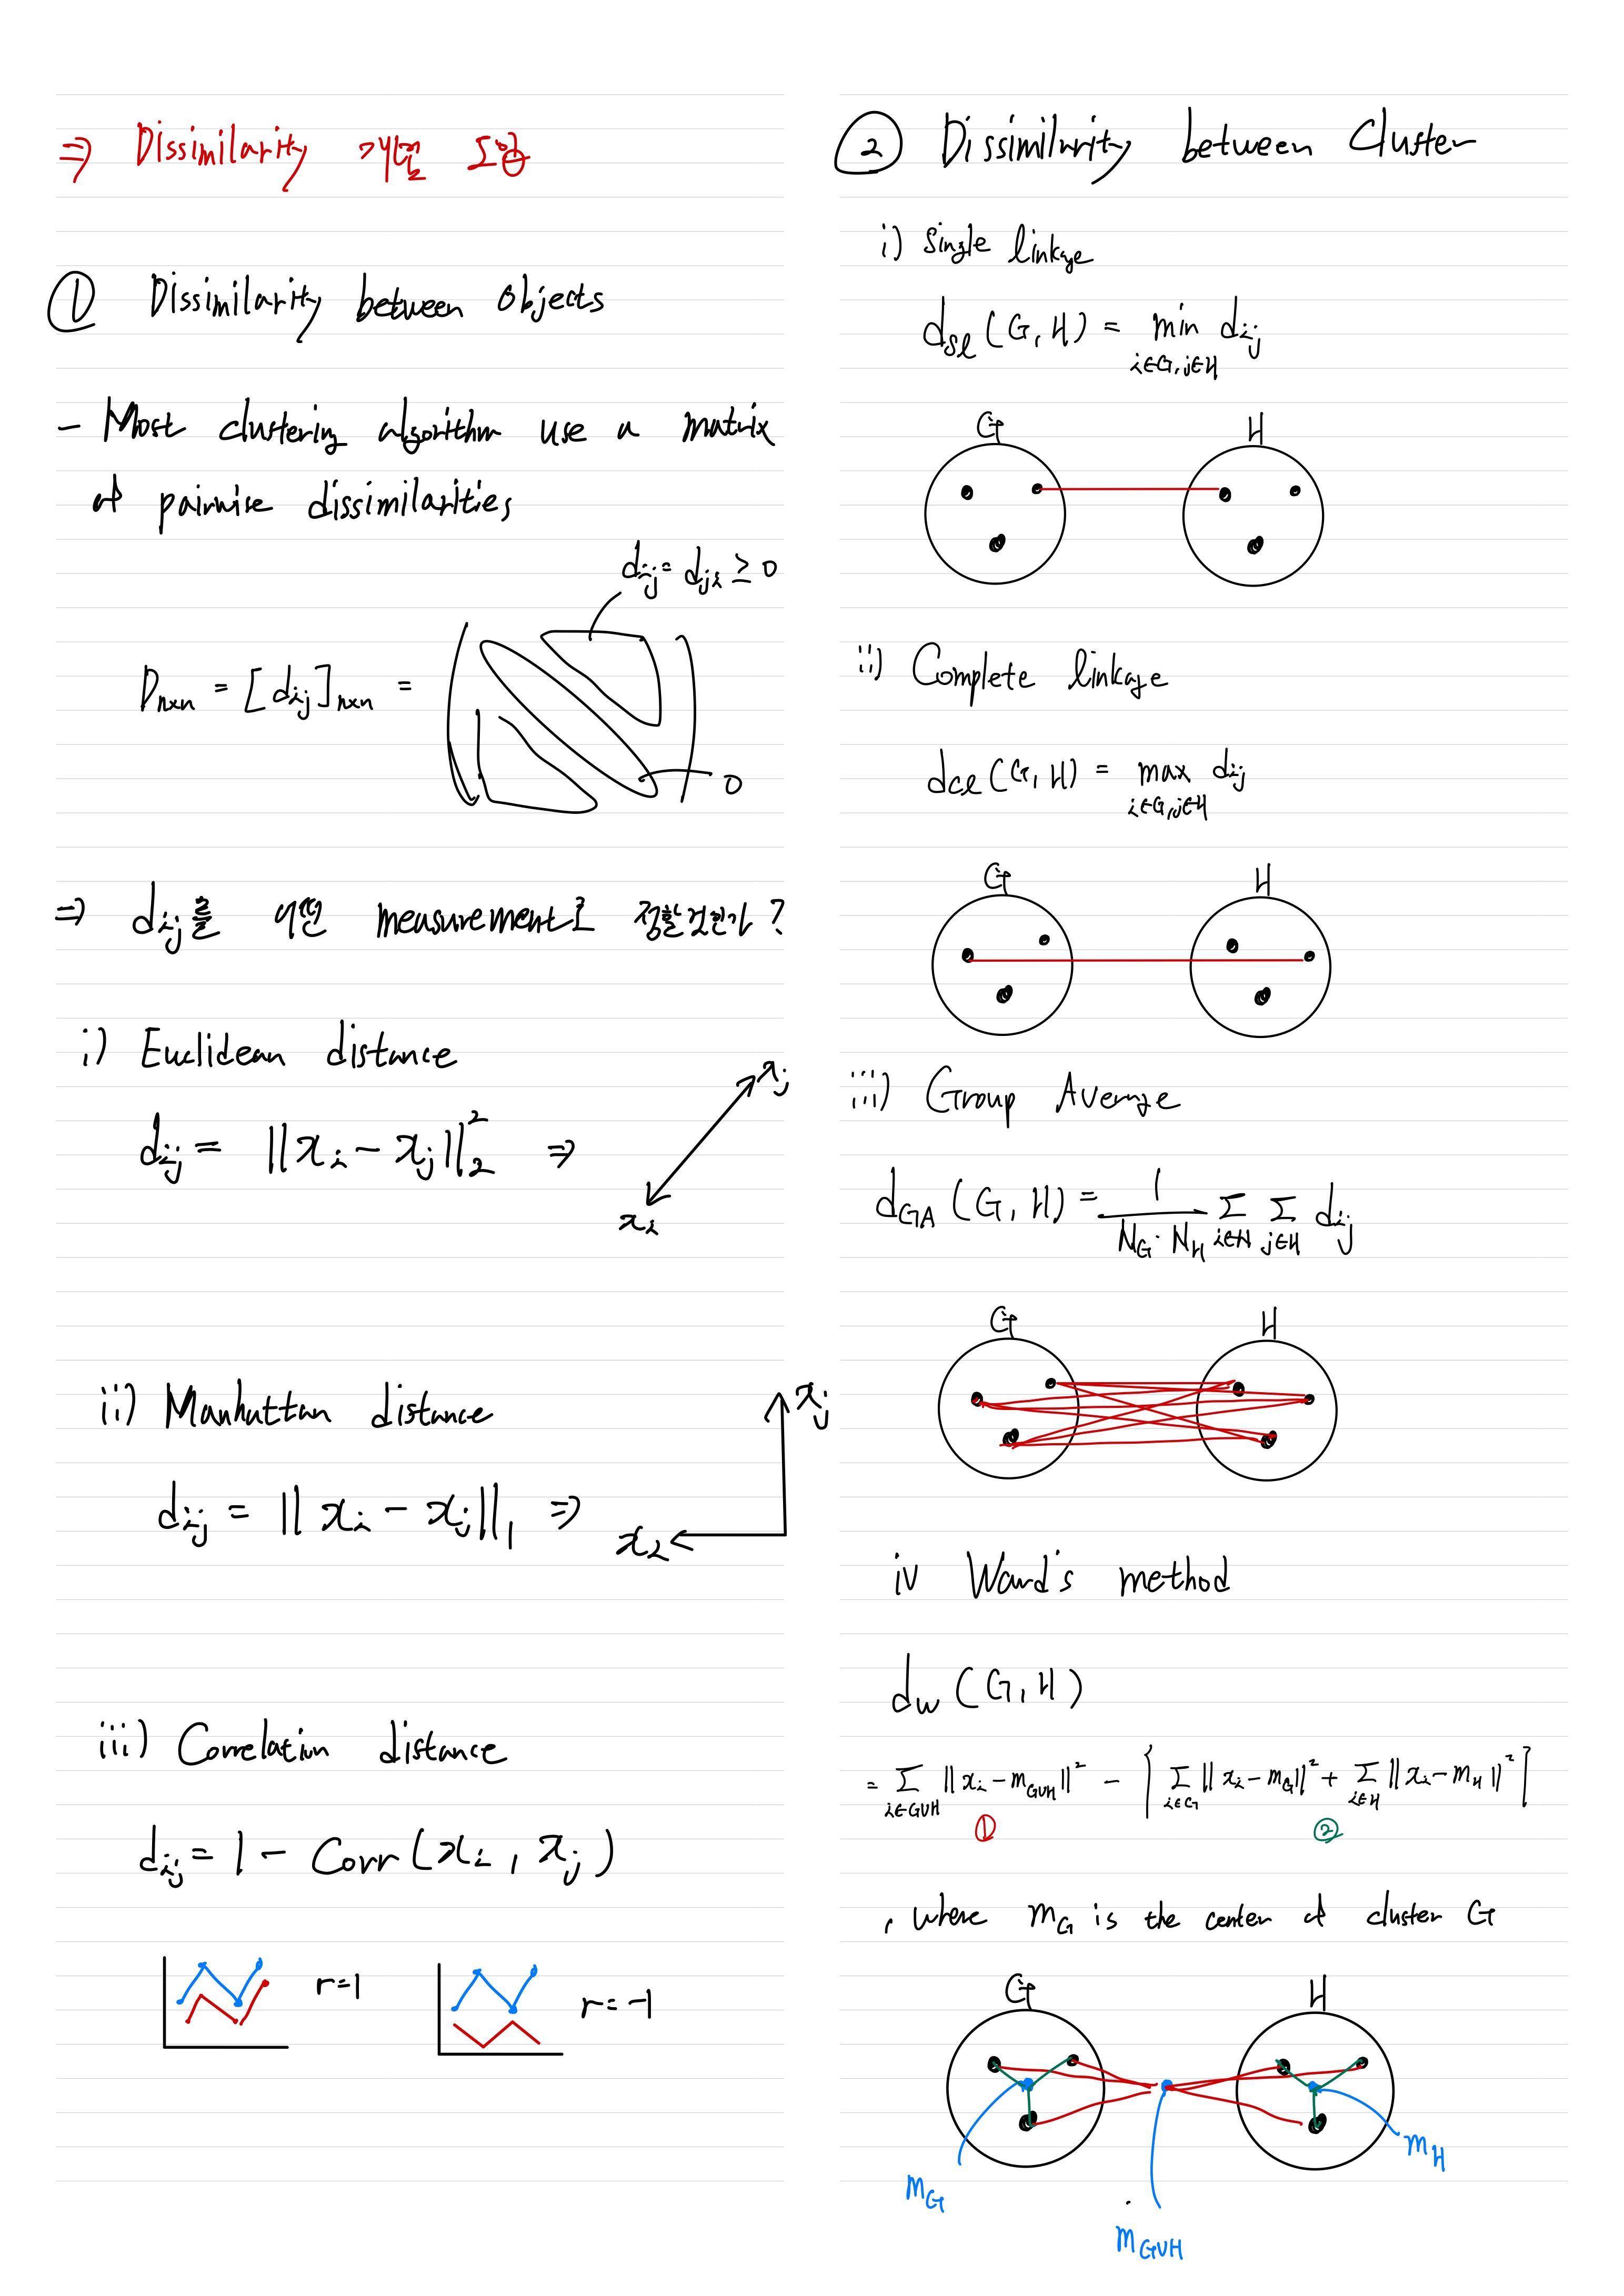 ⇒ Dissimilarity 개념 도입
① Dissimilarity between objects
- Most clustering algorithm use a matrix
of pairwise dissimilarities
d_ij = d_ji ≥ 0
D_n×n = [d_ij]_n×n =
0
⇒ d_ij를 어떤 measurement로 정할것인가?
i) Euclidean distance
d_ij = ||x_i - x_j||_2^2 ⇒
x_j
x_i
ii) Manhattan distance
x_j
d_ij = ||x_i - x_j||_1 ⇒
x_2
iii) Correlation distance
d_ij = 1 - Corr(x_i, x_j)
r=1
r=-1
② Dissimilarity between Cluster
i) Single linkage
d_sl (G, H) = min d_ij
i∈G, j∈H
G H
ii) Complete linkage
d_cl (G, H) = max d_ij
i∈G, j∈H
G H
iii) Group Average
d_GA (G, H) = 1/(N_G · N_H) Σ_i∈H Σ_j∈H d_ij
G H
iv Ward's method
d_w (G, H)
= Σ_i∈G∪H ||x_i - m_G∪H||^2 - [Σ_i∈G ||x_i - m_G||^2 + Σ_i∈H ||x_i - m_H||^2]
① ②
, where m_G is the center of cluster G
G H
m_H
m_G
m_G∪H